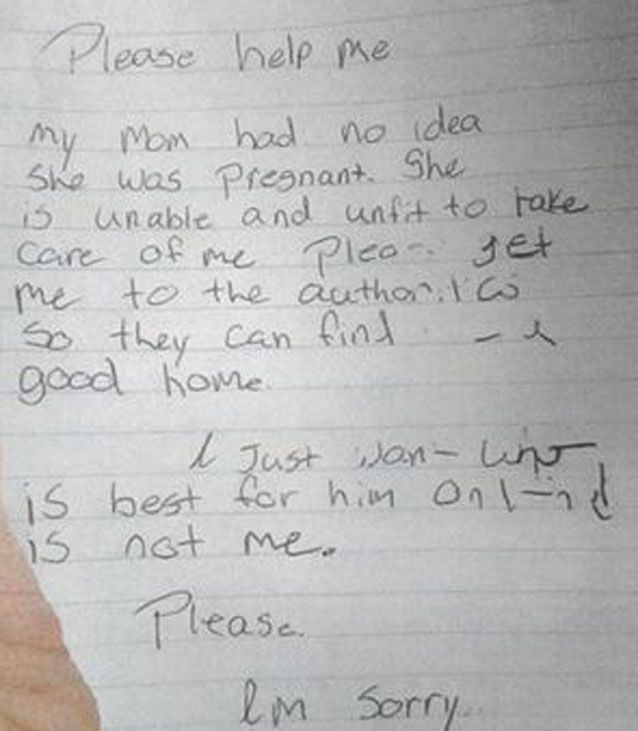 Please help me
my mom had no idea
She was Pregnant. She
is unable and unfit to take
care of me get
me to the
So they can find
good home
I Just
is best for him
is not me.
Please.
Im sorry..